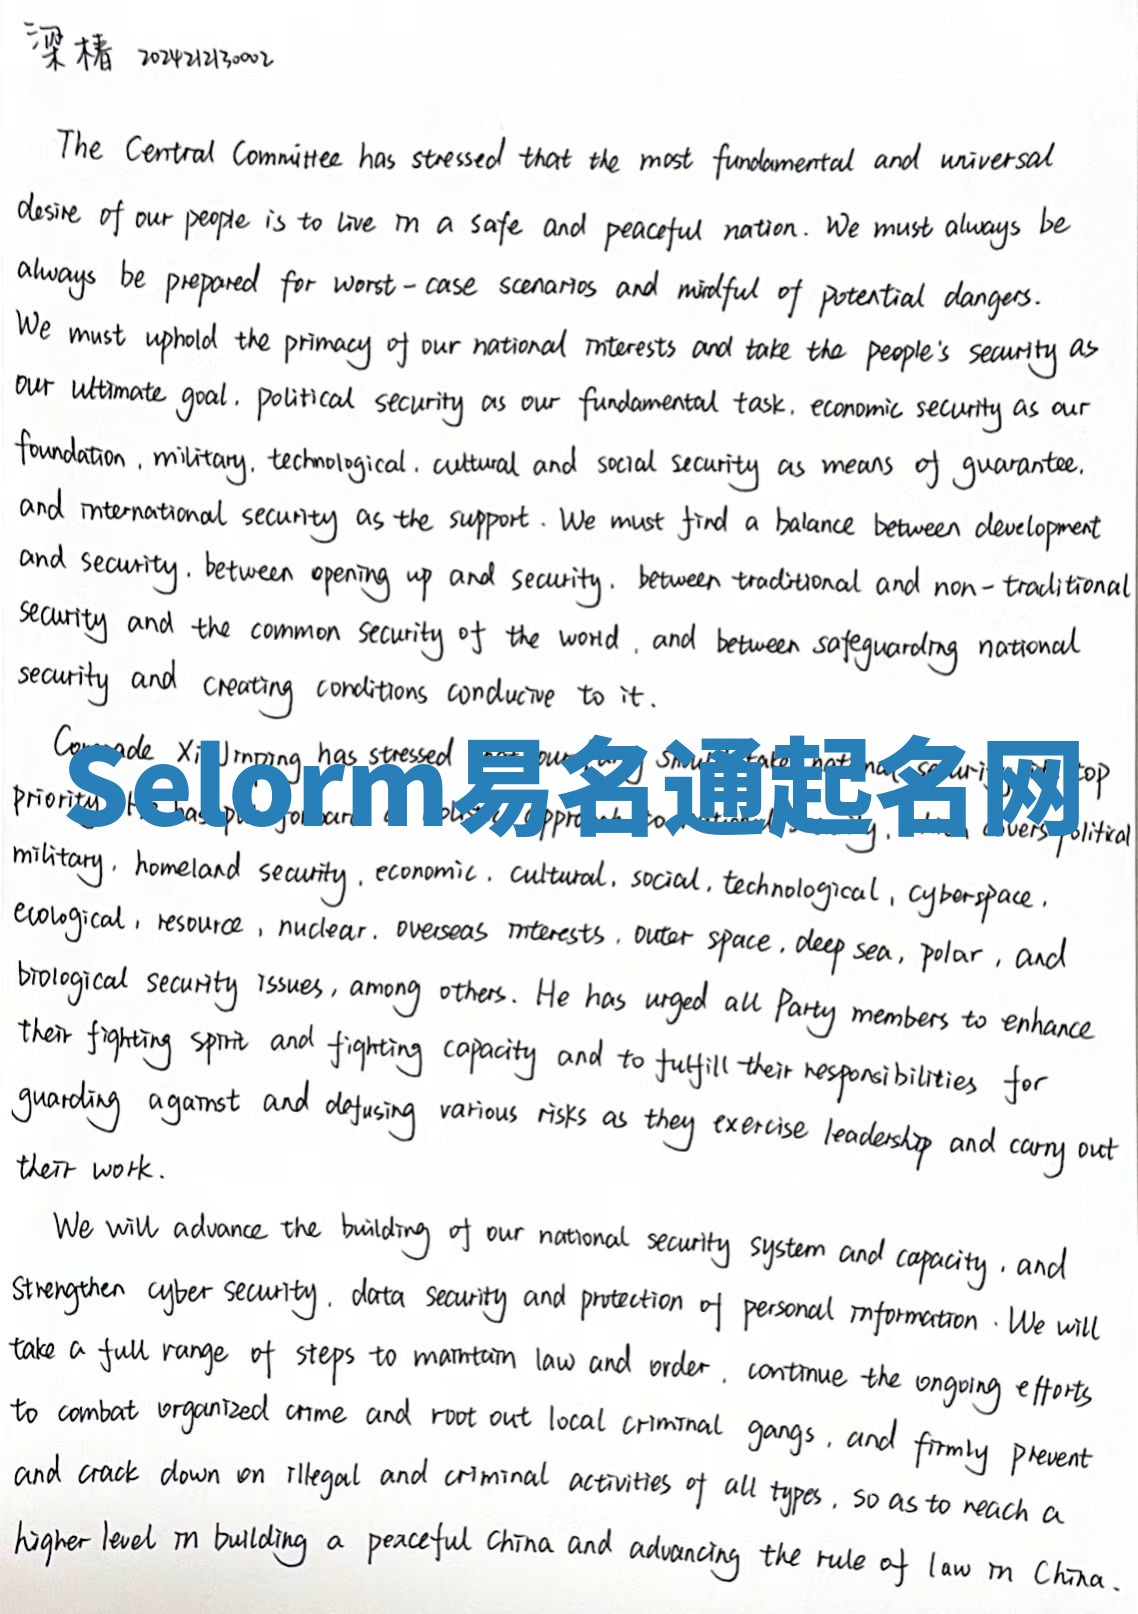 梁椿 2024212130002
The Central Committee has stressed that the most fundamental and universal
desire of our people is to live in a safe and peaceful nation. We must always be
always be prepared for worst-case scenarios and mindful of potential dangers.
We must uphold the primacy of our national interests and take the people's security as
our ultimate goal, political security as our fundamental task, economic security as our
foundation, military, technological, cultural and social security as means of guarantee,
and international security as the support. We must find a balance between development
and security, between opening up and security, between traditional and non-traditional
security and the common security of the world, and between safeguarding national
security and creating conditions conducive to it.
Comrade Xi Jinping has stressed take national security top
Selorm易名通起名网
priority. He has put forward approach to national security, covers political
military, homeland security, economic, cultural, social, technological, cyberspace,
ecological, resource, nuclear, overseas interests, outer space, deep sea, polar, and
biological security issues, among others. He has urged all Party members to enhance
their fighting spirit and fighting capacity and to fulfill their responsibilities for
guarding against and defusing various risks as they exercise leadership and carry out
their work.
We will advance the building of our national security system and capacity, and
strengthen cyber security, data security and protection of personal information. We will
take a full range of steps to maintain law and order, continue the ongoing efforts
to combat organized crime and root out local criminal gangs, and firmly prevent
and crack down on illegal and criminal activities of all types, so as to reach a
higher level in building a peaceful China and advancing the rule of law in China.